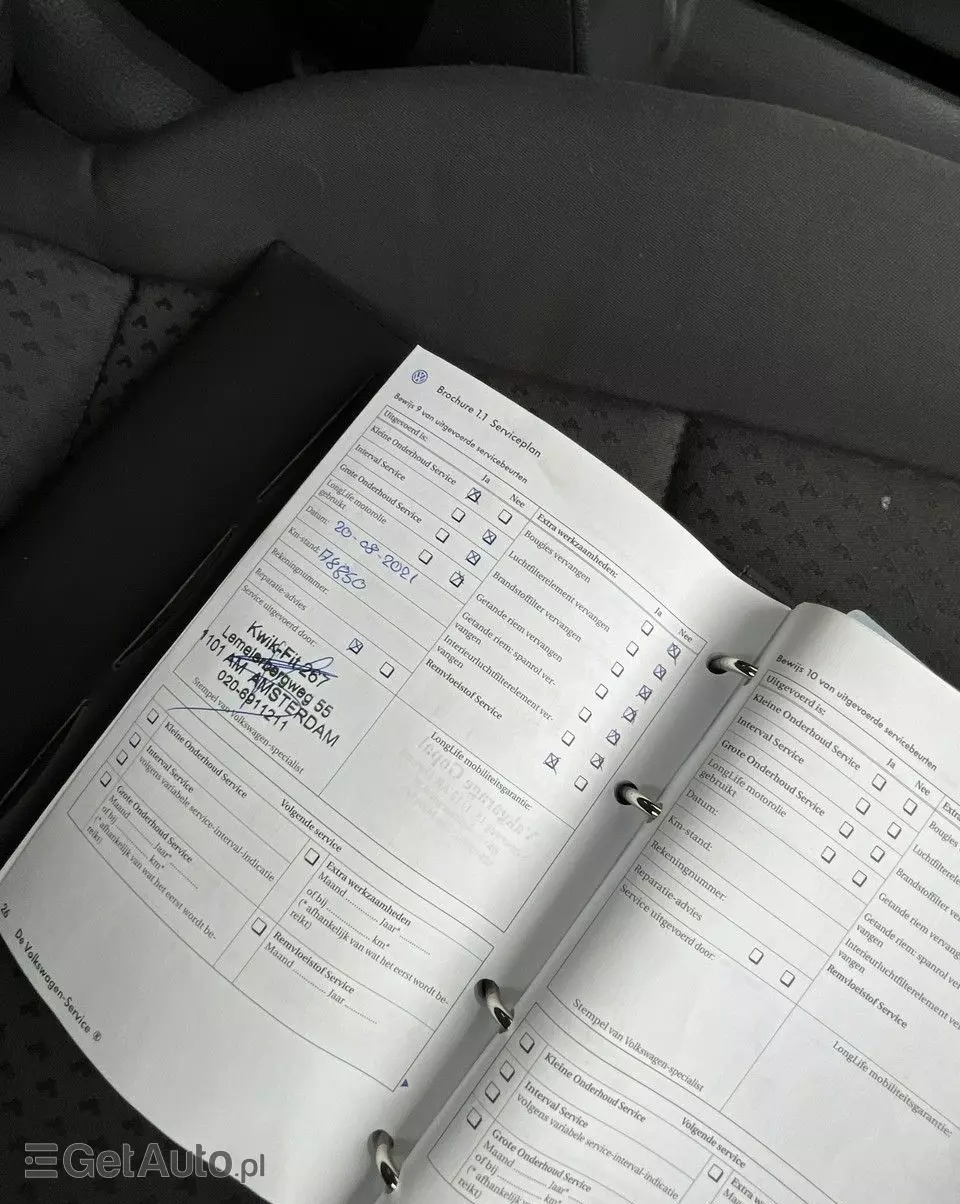 Brochure 1.1 Serviceplan
Bewijs 9 van uitgevoerde servicebeurten
Uitgevoerd is:
Ja
Nee
Kleine Onderhoud Service
Interval Service
Grote Onderhoud Service
LongLife motorolie
gebruikt
Datum: 20-08-2021
Km-stand: 78850
Rekeningnummer:
Reparatie-advies
Service uitgevoerd door:
Kwik-Fit 267
Lemelerbergweg 55
1101 AM AMSTERDAM
020-6911211
Stempel van Volkswagen-specialist
Extra werkzaamheden:
Ja
Nee
Bougies vervangen
Luchtfilterelement vervangen
Brandstoffilter vervangen
Getande riem vervangen
Getande riem: spanrol ver-
vangen
Interieurluchtfilterelement ver-
vangen
Remvloeistof Service
LongLife mobiliteitsgarantie:
Volgende service
Kleine Onderhoud Service
Interval Service
volgens variabele service-interval-indicatie
Grote Onderhoud Service
Maand ............ Jaar* ............
of bij ............ km*
(* afhankelijk van wat het eerst wordt be-
reikt)
Extra werkzaamheden
Maand ............ Jaar* ............
of bij ............ km*
(* afhankelijk van wat het eerst wordt be-
reikt)
Remvloeistof Service
Maand ............ Jaar ............
26
De Volkswagen-Service ®
Bewijs 10 van uitgevoerde servicebeurten
Uitgevoerd is:
Ja
Nee
Kleine Onderhoud Service
Interval Service
Grote Onderhoud Service
LongLife motorolie
gebruikt
Datum:
Km-stand:
Rekeningnummer:
Reparatie-advies
Service uitgevoerd door:
Stempel van Volkswagen-specialist
Extra
Bougies
Luchtfilterele
Brandstoffilter ve
Getande riem vervang
Getande riem: spanrol ver
vangen
Interieurluchtfilterelement ve
vangen
Remvloeistof Service
LongLife mobiliteitsgarantie:
Volgende service
Kleine Onderhoud Service
Interval Service
volgens variabele service-interval-indicatie
Grote Onderhoud Service
Maand ............ Jaar* ............
of bij ............ km*
(* afhankelijk van wat het eerst wordt be-
reikt)
Extra w
Maand
of bij
GetAuto.pl